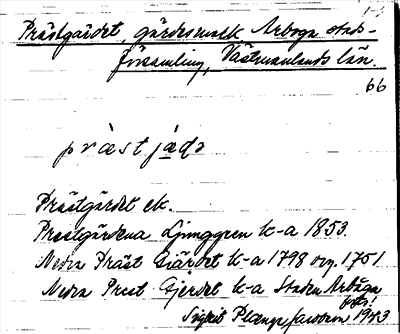 Prästgärdet, gärdesmark Arboga stads-
församling, Västmanlands län.
66
präst jädə
Prästgärdet ek.
Prästgärdena Ljunggren k-a 1853.
Nedra Präst Giärdet k-a 1798 orig. 1751
Nedra Prest Gjerdet k-a Staden Arboga
Ingrid 1943